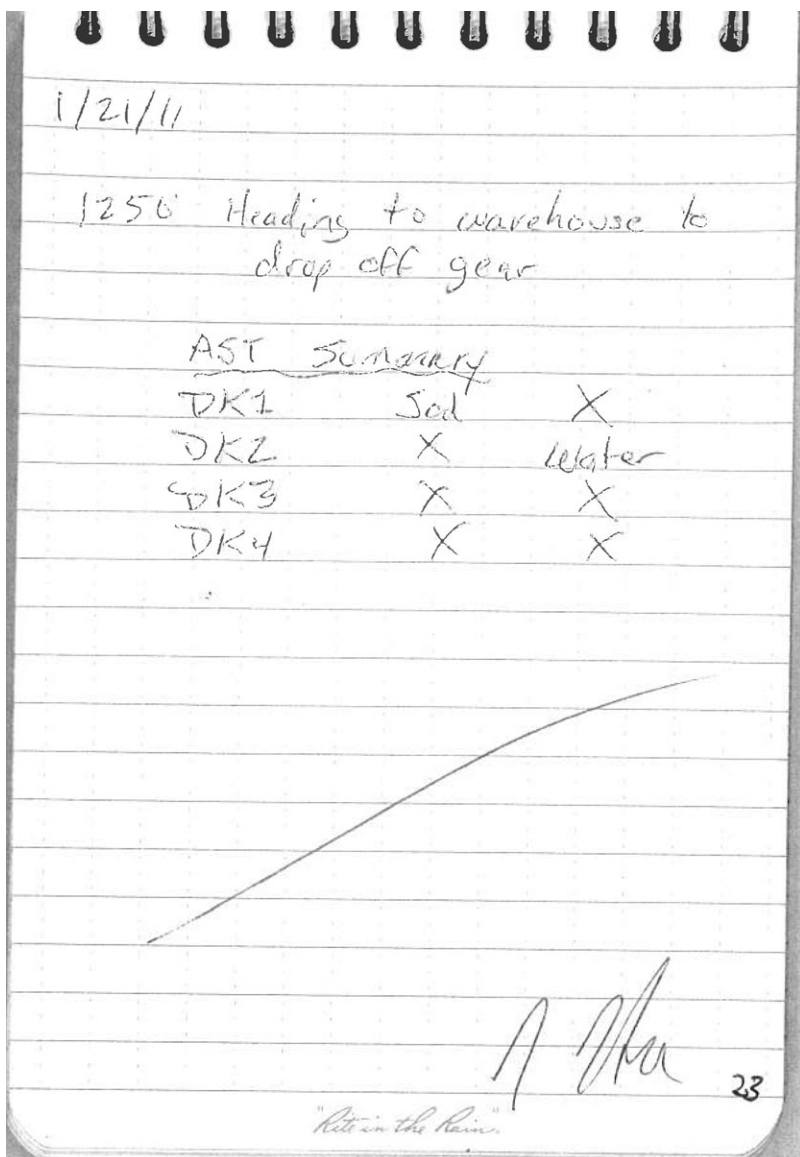 1/21/11
1250 Heading to warehouse to
drop off gear
AST Summary
DK1 Sed X
DK2 X Water
DK3 X X
DK4 X X
23
"Rite in the Rain"